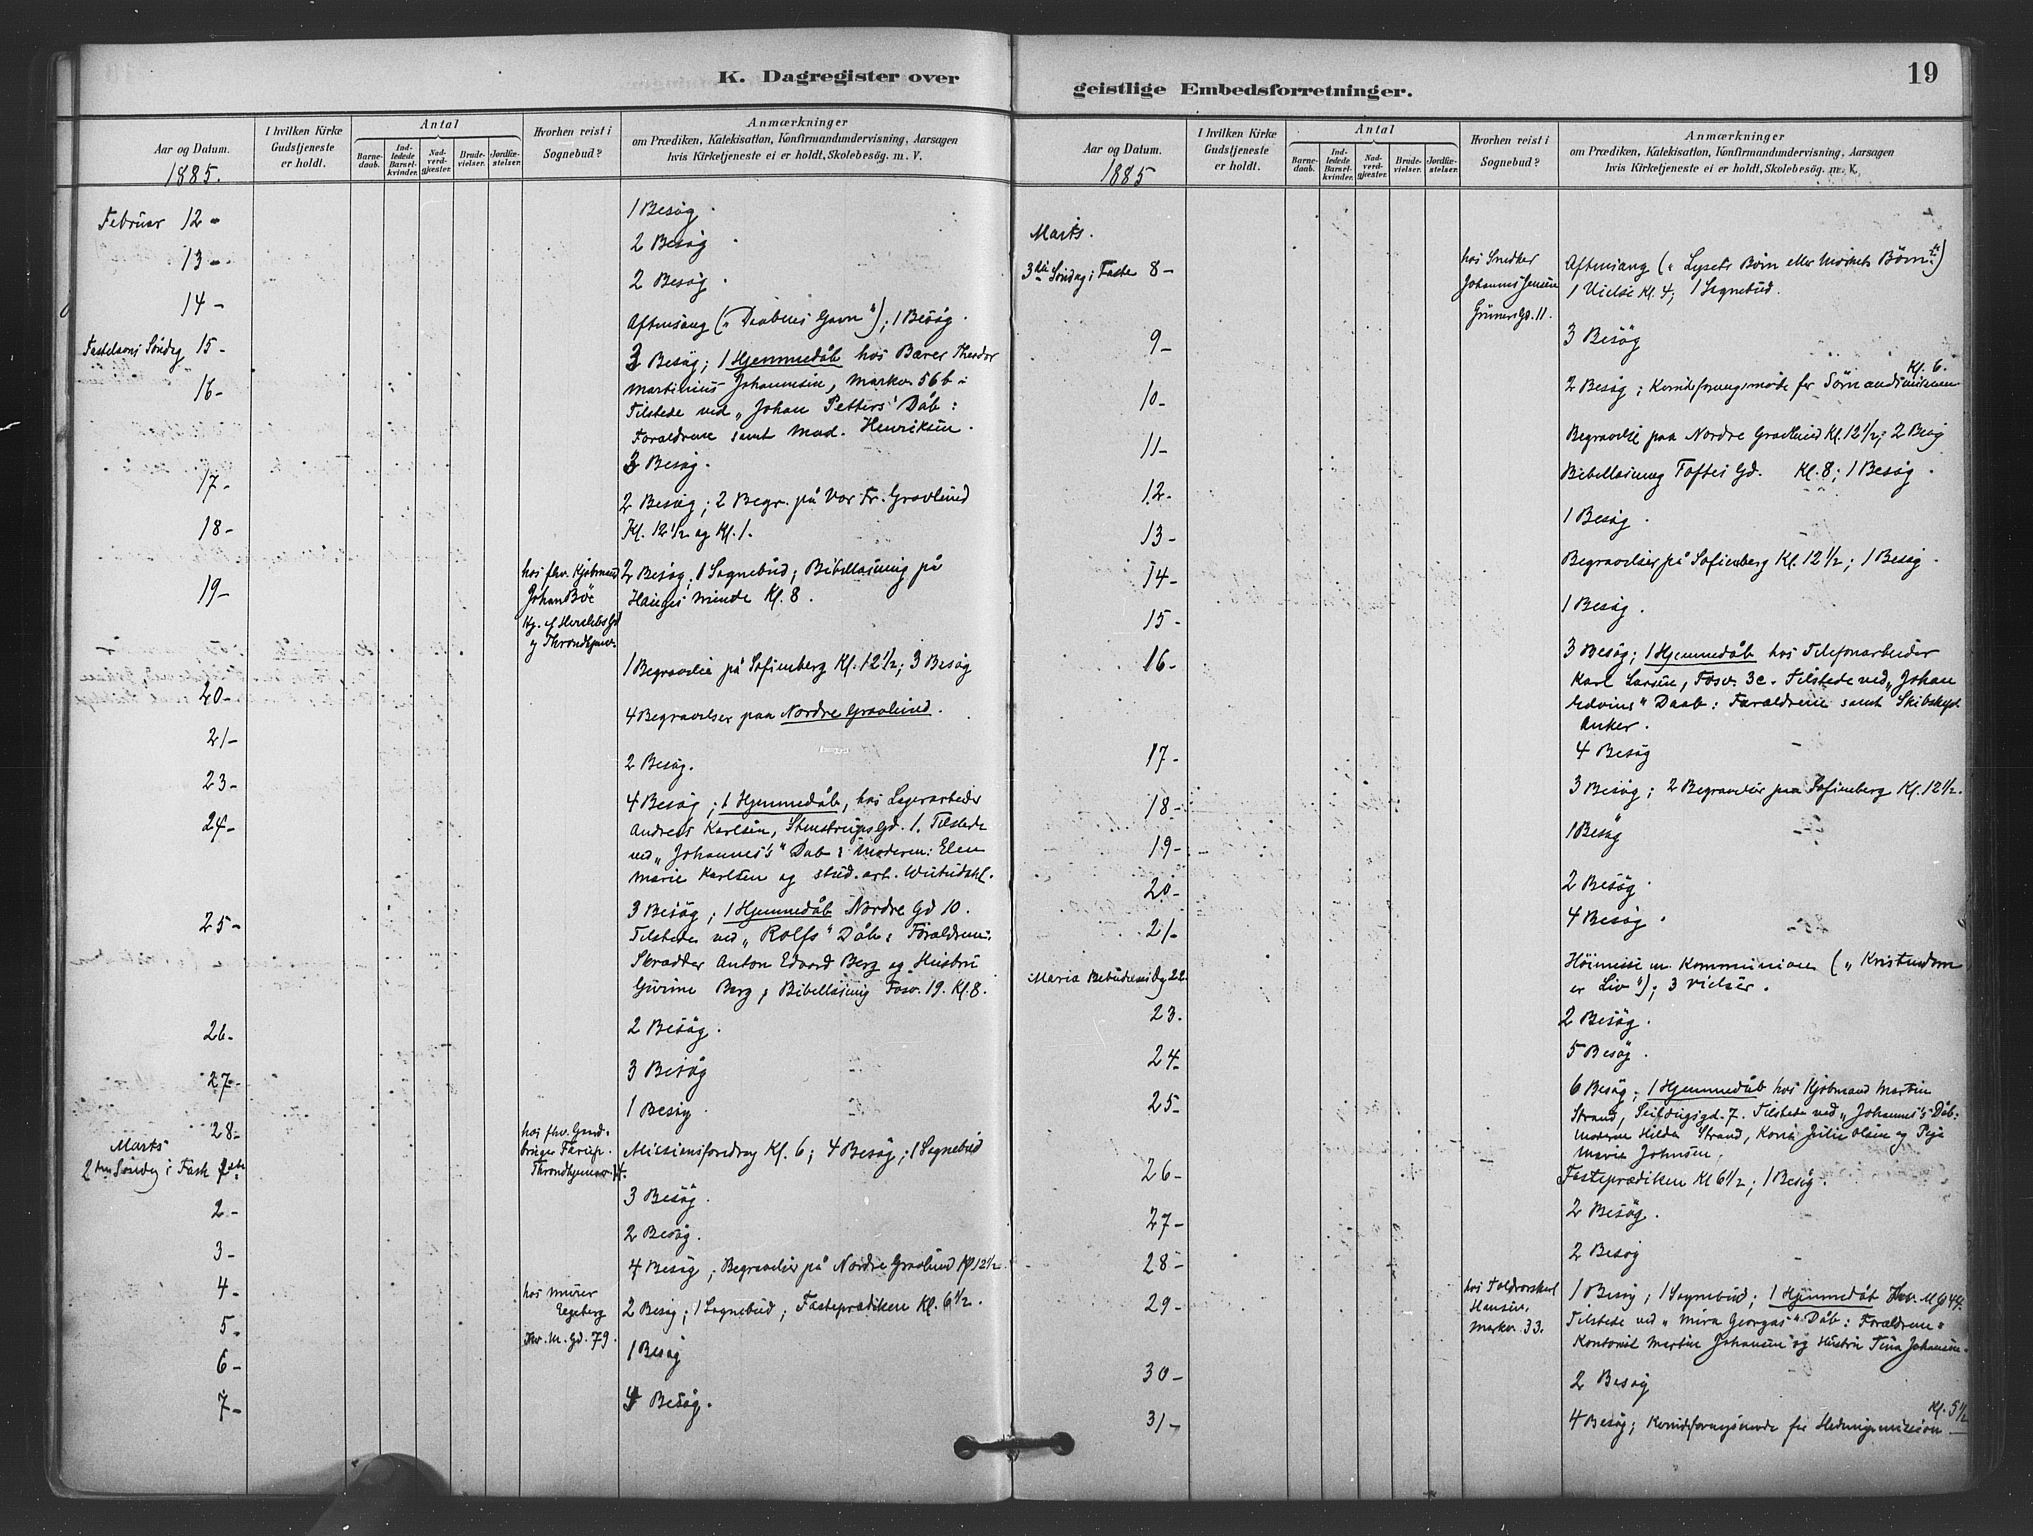 K. Dagregister over
Aar og Datum.
1885.
I hvilken Kirke
Gudstjeneste
er holdt.
Antal
Barne-
daab.
Ind-
ledede
Barsel-
kvinder.
Nad-
verd-
gjæster.
Brude-
vielser.
Jordfæ-
stelser.
Hvorhen reist i
Sognebud?
Anmærkninger
om Prædiken, Katekisation, Konfirmandundervisning, Aarsagen
hvis Kirketjeneste ei er holdt, Skolebesøg. m. V.
Februar 12-
1 Besøg.
13-
2 Besøg
14-
2 Besøg.
Fastelavns Søndag 15-
Aftensang („Daabens Gavn“); 1 Besøg.
16-
3 Besøg; 1 Hjemmedåb hos Bærer Theodor
Martinius Johannesen, Markv 56b -
Tilstede ved „Johan Petters“ Dåb:
Forældrene samt Mad. Henriksen.
17-
3 Besøg.
18-
2 Besøg; 2 Begr. på Vor Fr. Gravlund
Kl. 12 1/2 og Kl. 1.
19-
hos fhv. Kjøbmand
Johan Böe
Hj. af Herslebs Gd
og Throndhjemsv.
2 Besøg; 1 Sognebud; Bibellæsning på
Hauges Minde Kl. 8.
20-
1 Begravelse på Sofienberg Kl. 12 1/2; 3 Besøg
21-
4 Begravelser paa Nordre Gravlund.
23-
2 Besøg.
24-
4 Besøg; 1 Hjemmedåb, hos Lagerarbeider
Andreas Karlsen, Stenstrups Gd. 1. Tilstede
ved „Johannes's“ Dåb: Moderen: Elen
Marie Karlsen og stud. art.
25-
3 Besøg; 1 Hjemmedåb Nordre Gd 10.
Tilstede ved „Rolfs“ Dåb: Forældrene:
Skrædder Anton Edvard Berg og Hustru
Berg; Bibellæsning Fosv. 19. Kl. 8.
26-
2 Besøg.
27-
3 Besøg
28-
1 Besøg.
Marts
2den Søndag i Faste 1ste
hos fhv. Gaard-
bruger
Throndhjemsv.
Missionsforedrag Kl. 6; 4 Besøg; 1 Sognebud
2-
3 Besøg.
3-
2 Besøg.
4-
4 Besøg; Begravelse på Nordre Gravlund Kl 12 1/2
5-
hos Murer
Egeberg
Thv. M. Gd. 79.
2 Besøg; 1 Sognebud; Fasteprædiken Kl. 6 1/2.
6-
1 Besøg
7-
4 Besøg.
geistlige Embedsforretninger.
19
Aar og Datum.
1885
I hvilken Kirke
Gudstjeneste
er holdt.
Antal
Barne-
daab.
Ind-
ledede
Barsel-
kvinder.
Nad-
verd-
gjæster.
Brude-
vielser.
Jordfæ-
stelser.
Hvorhen reist i
Sognebud?
Anmærkninger
om Prædiken, Katekisation, Konfirmandundervisning, Aarsagen
hvis Kirketjeneste ei er holdt, Skolebesøg. m. V.
Marts.
3die Søndag i Faste 8-
hos Snedker
Johannes Jensen
Grüners Gd. 11.
Aftensang („Lysets Børn eller Mørkets Børn“)
1 Vielse Kl. 4; 1 Sognebud.
9-
3 Besøg
10-
2 Besøg; Komiteforeningsmøde for Sømandsmissionen Kl. 6.
11-
Begravelse paa Nordre Gravlund Kl. 12 1/2; 2 Besøg
12-
Bibellæsning Toftes Gd. Kl. 8; 1 Besøg.
13-
1 Besøg.
14-
Begravelser på Sofienberg Kl. 12 1/2; 1 Besøg.
15-
1 Besøg.
16-
3 Besøg; 1 Hjemmedåb hos Telefonarbeider
Karl Larsen, Fosv. 3c. Tilstede ved „Johan
Edvins“ Daab: Forældrene samt
Anker.
17-
4 Besøg
18-
3 Besøg; 2 Begravelser paa Sofienberg Kl. 12 1/2.
19-
1 Besøg
20-
2 Besøg.
21-
4 Besøg.
Maria Bebudelses Dg 22
Høimesse m. Kommunion („Kristendom
er Liv“); 3 Vielser.
23.
2 Besøg.
24-
5 Besøg.
25-
6 Besøg; 1 Hjemmedåb hos Kjøbmand Martin
Strand, Seilduksgd. 7. Tilstede ved „Johannes's“ Dåb:
Moderen Hilda Strand, Julie Olsen og
Marie Johnsen.
26-
Fasteprædiken Kl 6 1/2; 1 Besøg.
27-
2 Besøg.
28-
2 Besøg
29-
hos Toldvorskarl
Hansen.
Markv. 33.
1 Besøg; 1 Sognebud; 1 Hjemmedåb Thv. M. G 44.
Tilstede ved „Mira Georgas“ Dåb: Forældrene:
Kontorist Martin Johansen og Hustru Tina Johansen.
30-
2 Besøg
31-
4 Besøg; Komiteforeningsmøde for Hedningemission Kl. 5 1/2